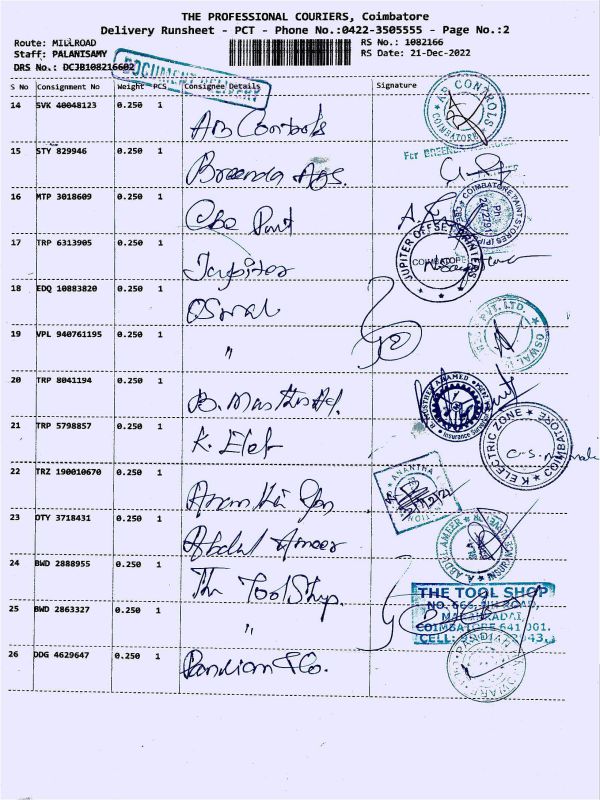 THE PROFESSIONAL COURIERS, Coimbatore
Delivery Runsheet - PCT - Phone No.:0422-3505555 - Page No.:2
Route: MILLROAD RS No.: 1082166
Staff: PALANISAMY RS Date: 21-Dec-2022
DRS No.: DCJB108216602
DOCUMENT DELIVERY
S No Consignment No Weight PCS Consignee Details Signature
14 SVK 40048123 0.250 1 AB Controls
AB CONTROLS COIMBATORE
15 STY 829946 0.250 1 Breenda Ags.
For BREENDA
16 MTP 3018609 0.250 1 Cbe Paint
COIMBATORE PAINT STORES
17 TRP 6313905 0.250 1 Jupiter
JUPITER OFFSET PRINTERS COIMBATORE
18 EDQ 10883820 0.250 1 Oswal
PVT. LTD. OSWAL
19 VPL 940761195 0.250 1 "
20 TRP 8041194 0.250 1
Insurance
21 TRP 5798857 0.250 1 K. Elek
K ELECTRIC ZONE COIMBATORE
22 TRZ 190010670 0.250 1
ANANTHA
23 OTY 3718431 0.250 1 Abdul Ameer
A. ABDUL AMEER
24 BWD 2888955 0.250 1 The Tool Shop.
THE TOOL SHOP
COIMBATORE 641 001.
CELL:
25 BWD 2863327 0.250 1 "
26 DDG 4629647 0.250 1 Pandian & Co.
PANDIAN